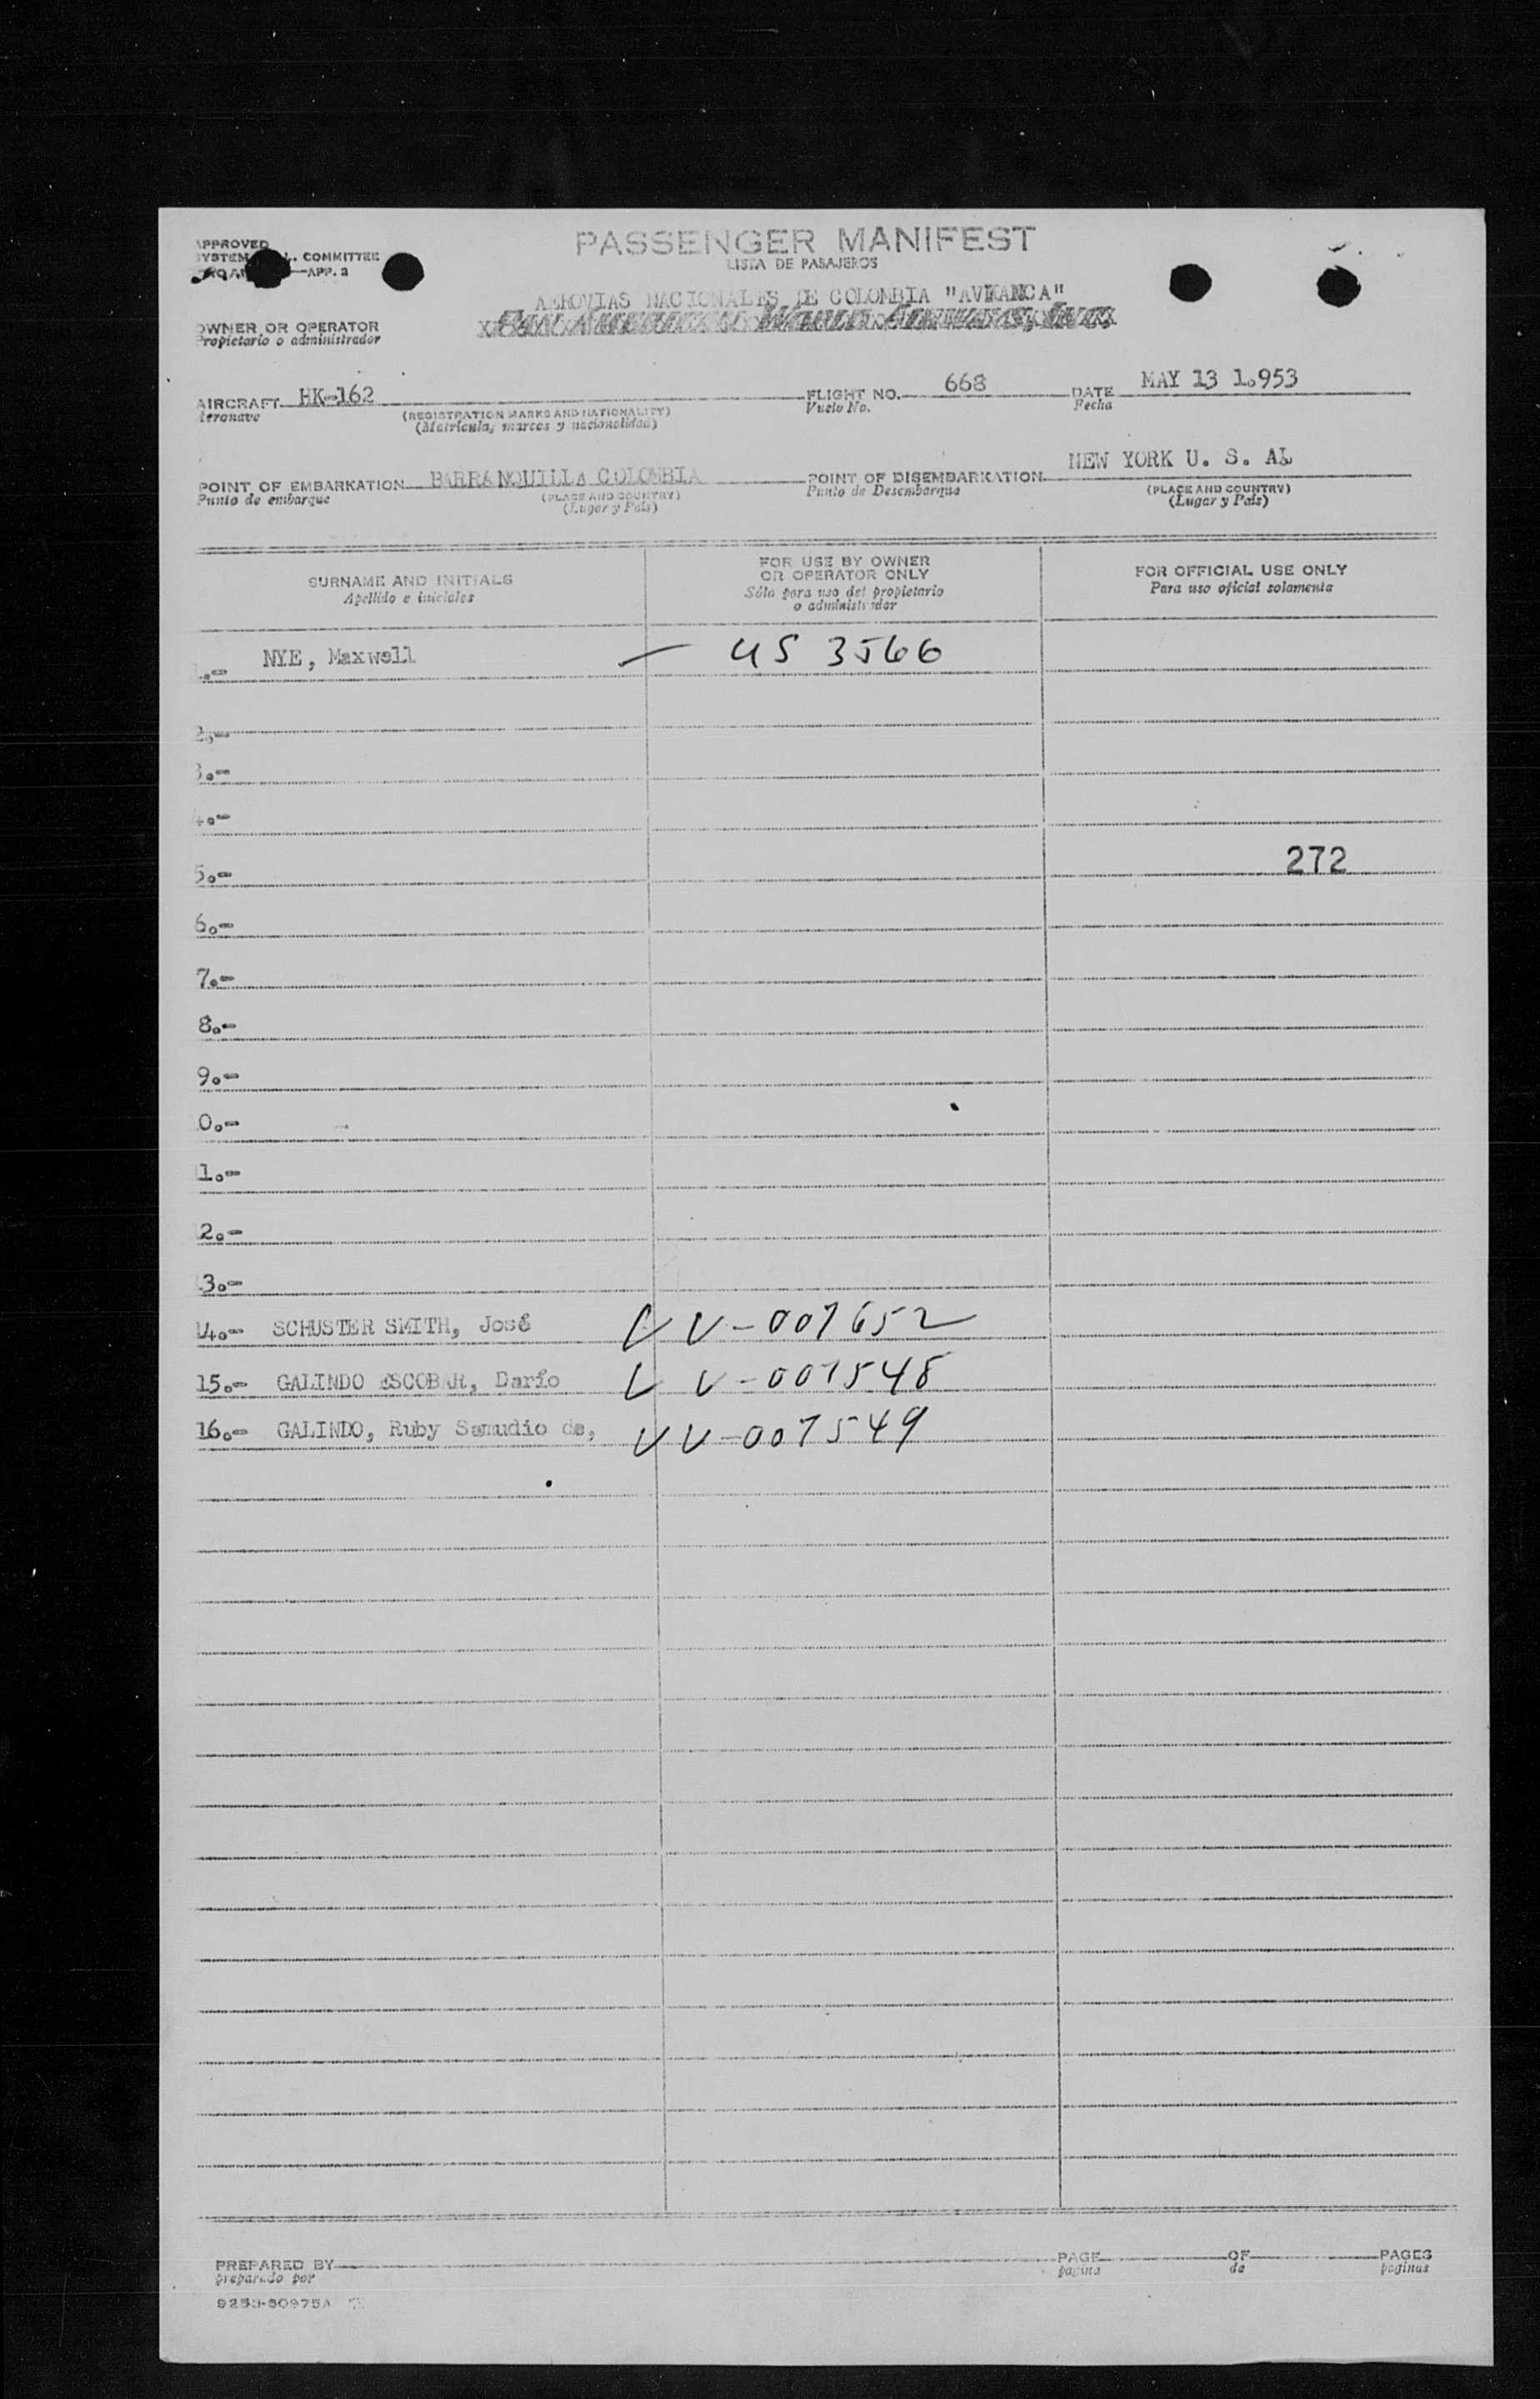 PASSENGER MANIFEST
LISTA DE PASAJEROS
APPROVED
SYSTEM COMMITTEE
APP. 2
AEROVIAS NACIONALES DE COLOMBIA "AVIANCA"
Pan American World Airways, Inc.
OWNER OR OPERATOR
Propietario o administrador
AIRCRAFT HK-162
Aeronave
(REGISTRATION MARKS AND NATIONALITY)
(Matricula, marcos y nacionalidad)
FLIGHT NO. 668
Vuelo No.
DATE MAY 13 1.953
Fecha
POINT OF EMBARKATION BARRANQUILLA COLOMBIA
Punto de embarque
(PLACE AND COUNTRY)
(Lugar y País)
POINT OF DISEMBARKATION NEW YORK U. S. A
Punto de Desembarque
(PLACE AND COUNTRY)
(Lugar y País)
SURNAME AND INITIALS
Apellido e iniciales
FOR USE BY OWNER
OR OPERATOR ONLY
Sólo para uso del propietario
o administrador
FOR OFFICIAL USE ONLY
Para uso oficial solamente
1.- NYE, Maxwell — US 3566
2.-
3.-
4.-
5.- 272
6.-
7.-
8.-
9.-
0.-
1.-
2.-
3.-
14.- SCHUSTER SMITH, José V V-007652
15.- GALINDO ESCOBAR, Darío V V-007548
16.- GALINDO, Ruby Samudio de, V V-007549
PREPARED BY
preparado por
PAGE OF PAGES
pagina de paginas
9253-50975A